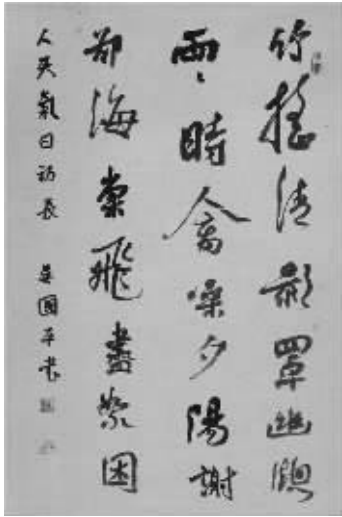 竹搖清影罩幽牕
兩〻時禽噪夕陽謝
卻海棠飛盡絮困
人天氣日初長 國平書